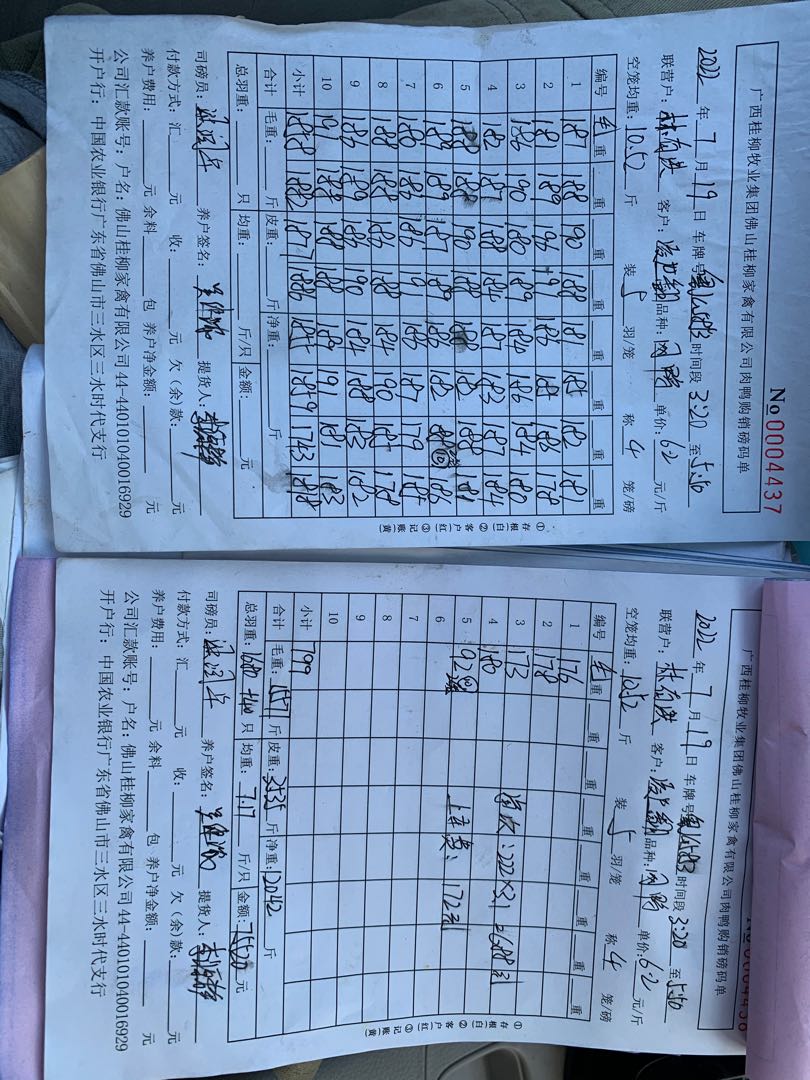 广西桂柳牧业集团佛山桂柳家禽有限公司肉鸭购销磅码单
No 0004437
2022 年 7 月 19 日 车牌号: 时间段 3:20 至 5:40
联营户: 林有洪 客户: 品种: 肉鸭 单价: 6.2 元/斤
空笼均重: 10.52 斤 装 5 羽/笼 称 4 笼/磅
编号 毛重 重 重 重 重 重 重 重
1 187 188 190 188 181 185 182 181
2 181 189 196 191 186 185 186 178
3 186 190 180 189 184 186 184 180
4 182 187 188 184 187 183 187 184
5 188 188 190 188 188 182 188 181
6 189 189 187 189 186 182 186
7 180 186 186 191 186 187 179 185
8 188 188 186 188 184 190 181 178
9 186 189 188 190 184 188 183 182
10 191 188 188 188 189 191 181 183
小计 1858 1882 1871 1886 1855 1859 1743 1818
合计 毛重: 斤 皮重: 斤 净重: 斤
总羽重: 只 均重: 斤/只 金额: 元
①存根(白) ②客户(红) ③记账(黄)
司磅员: 养户签名: 提货人:
付款方式: 汇 元 收: 元 欠(余)款: 元
养户费用: 元 余料 包 养户净金额: 元
公司汇款账号: 户名: 佛山桂柳家禽有限公司 44-440101040016929
开户行: 中国农业银行广东省佛山市三水区三水时代支行
广西桂柳牧业集团佛山桂柳家禽有限公司肉鸭购销磅码单
No 0004438
2022 年 7 月 19 日 车牌号: 时间段 3:20 至 5:40
联营户: 林有洪 客户: 品种: 肉鸭 单价: 6.2 元/斤
空笼均重: 10.52 斤 装 5 羽/笼 称 4 笼/磅
编号 毛重 重 重 重 重 重 重 重
1 176
2 178
3 173
4 180
5 92
6
7
8
9
10
小计 799
合计 毛重: 15571 斤 皮重: 3535 斤 净重: 12042 斤
总羽重: 1680 只 均重: 7.17 斤/只 金额: 元
①存根(白) ②客户(红) ③记账(黄)
司磅员: 养户签名: 提货人:
付款方式: 汇 元 收: 元 欠(余)款: 元
养户费用: 元 余料 包 养户净金额: 元
公司汇款账号: 户名: 佛山桂柳家禽有限公司 44-440101040016929
开户行: 中国农业银行广东省佛山市三水区三水时代支行